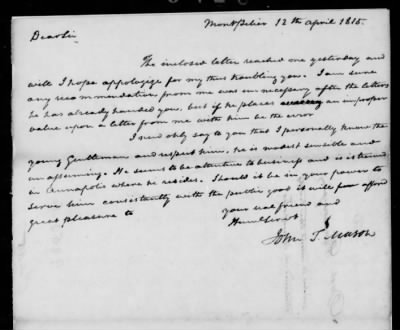 Montpelier 12th april 1815.
Dear Sir
The inclosed letter reached me yesterday and
will I hope appologize for my thus troubling you. I am sure
any recommendation from me was unnecessary after the letters
he has already handed you, but if he places an improper
value upon a letter from me with him be the error
I need only say to you that I personally know the
young Gentleman and respect him, he is modest sensible and
unassuming. He seems to be attentive to business and is esteemed
in Annapolis where he resides. Should it be in your power to
serve him consistently with the public good it will afford
great pleasure to
your real friend and
Huml Servt
John T. Mason